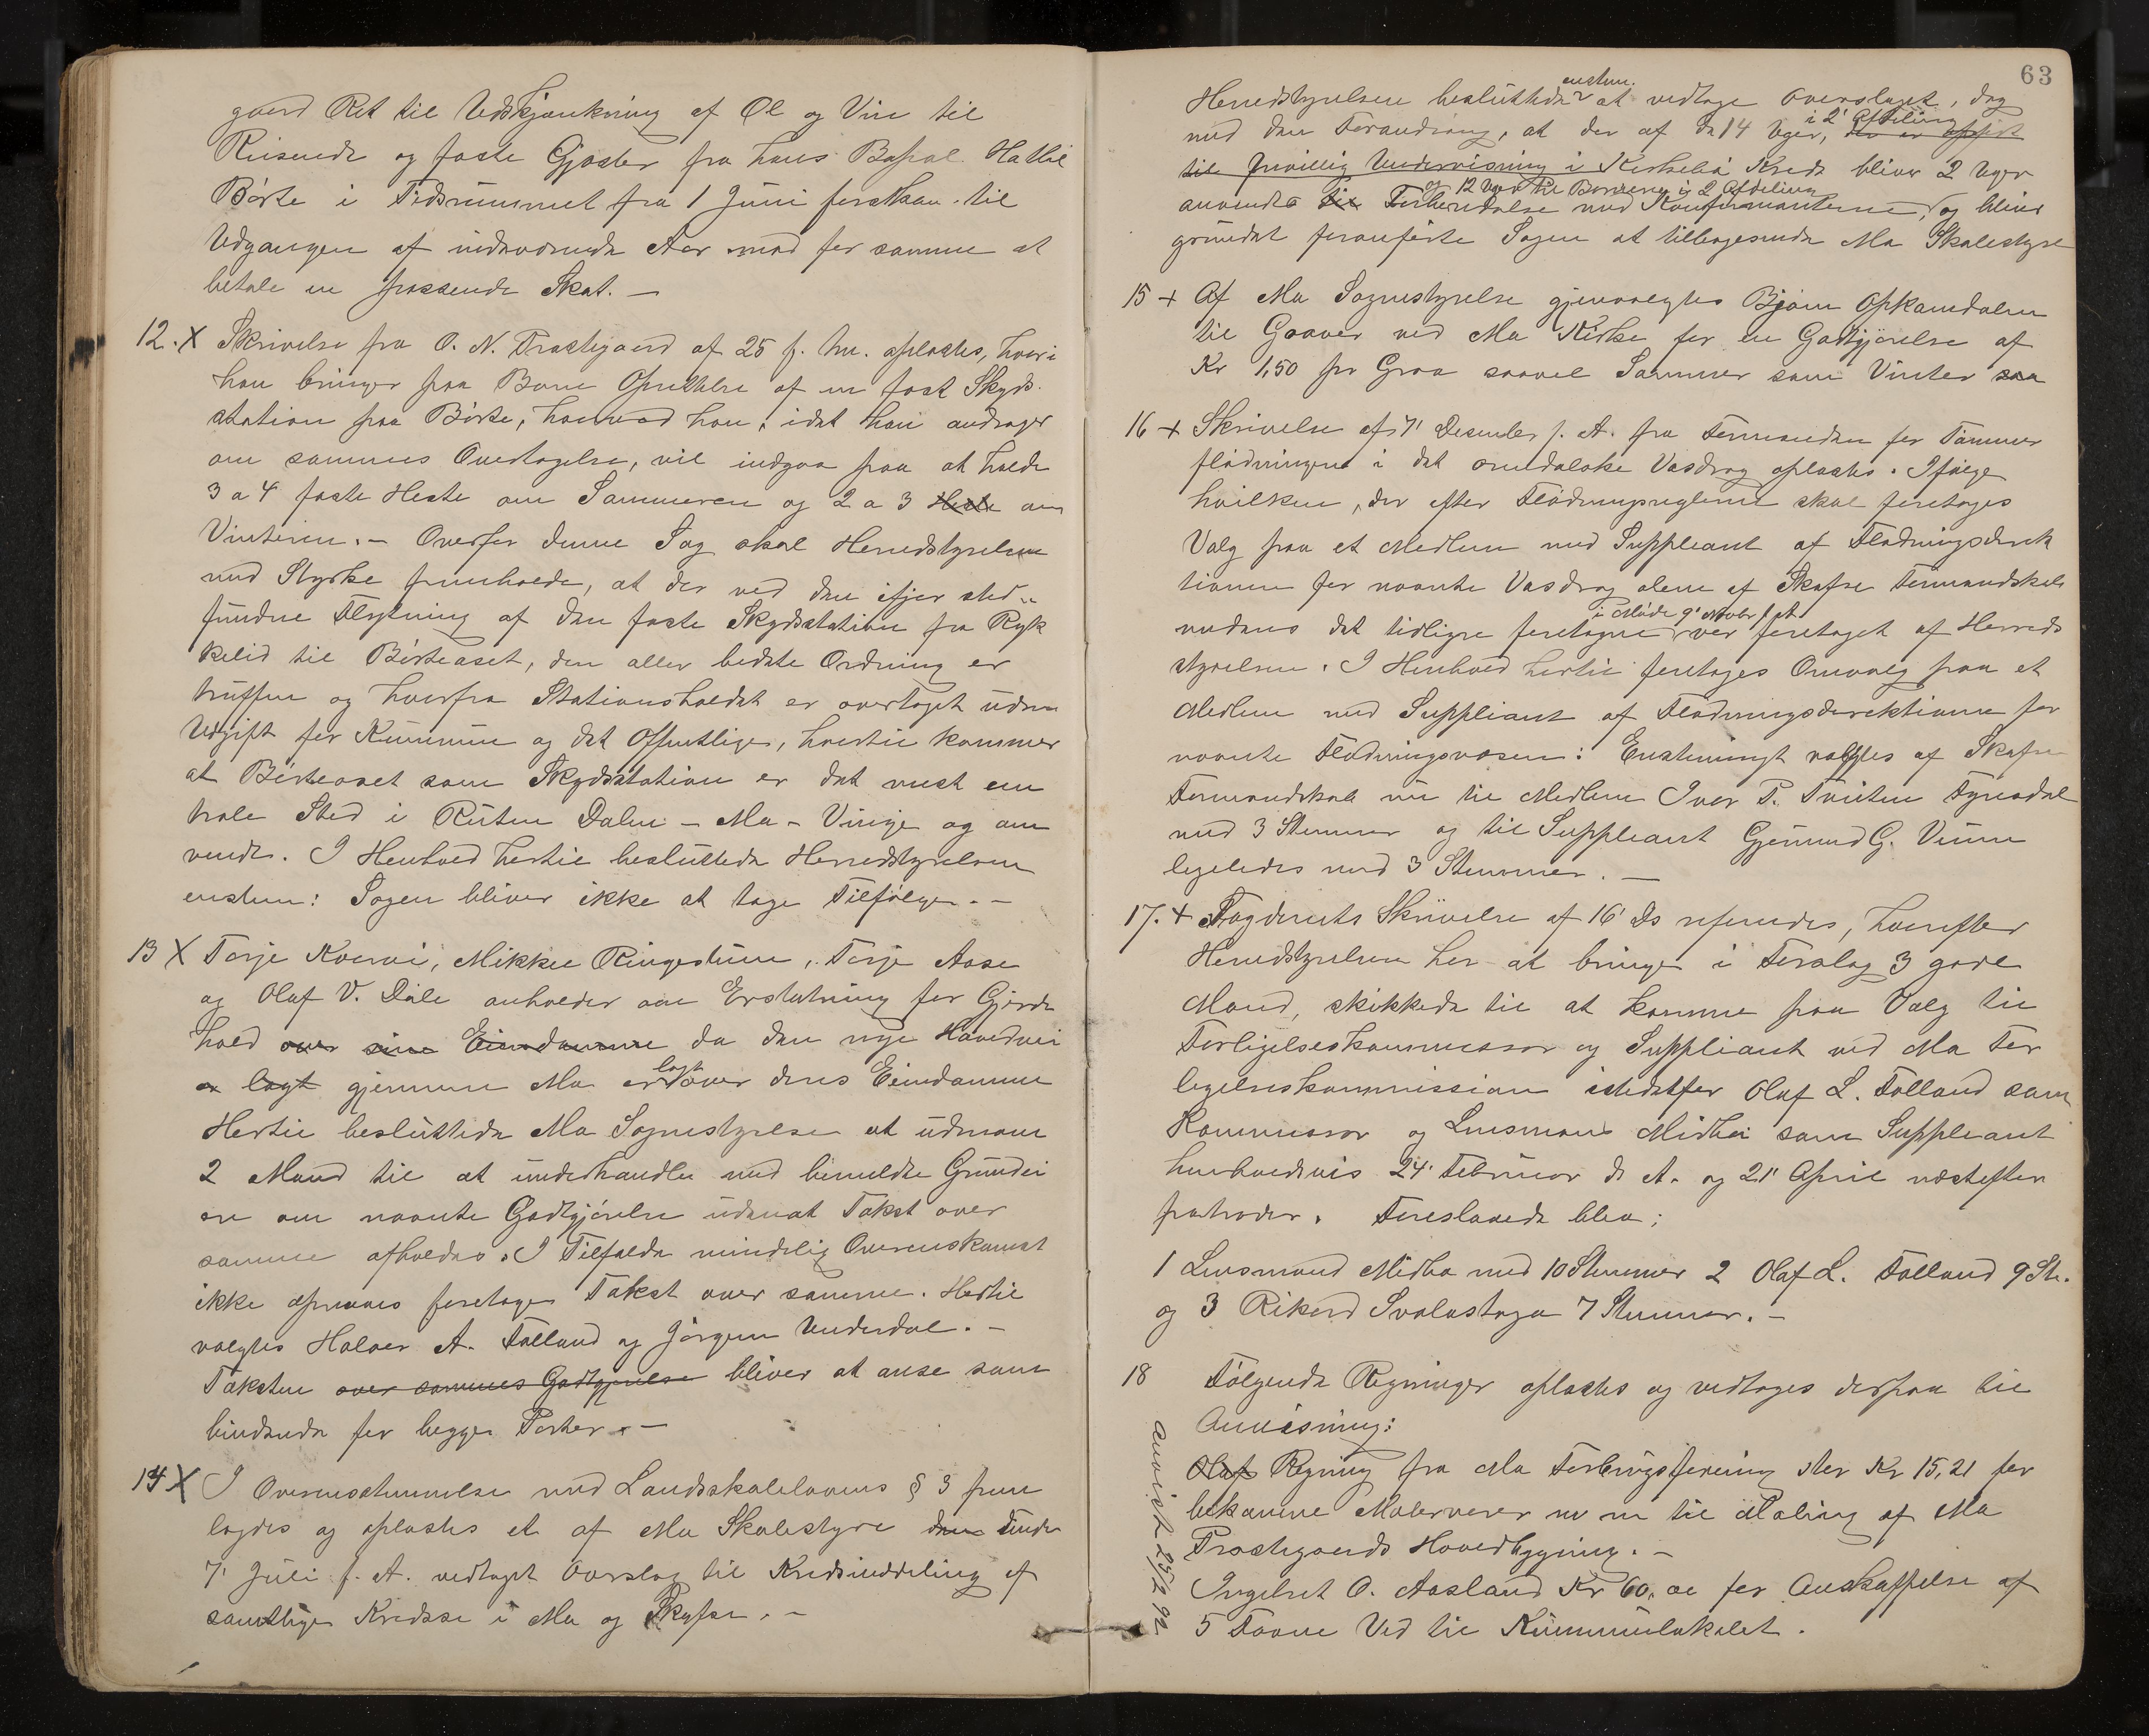 gaard Ret til Udskjænkning af Øl og Vin til
Reisende og faste Gjæster fra hans Bopæl Hattil
Børte i Tidsrummet fra 1 Juni førstkom. til
Udgangen af indeværende Aar mod for samme at
betale en passende Skat. —
12. X Skrivelse fra O. N. Træetegaard af 25 f. M. oplæstes, hvori
han bringer paa Bane Oprettelse af en fast Skyds-
station paa Børte, hvorved han, idet han andrager
om sammes Overtagelse, vil indgaa paa at holde
3 a 4 faste Heste om Sommeren og 2 a 3 Heste om
Vinteren. — Overfor denne Sag skal Herredstyrelsen
med Styrke fremholde, at der ved den ifjor sted-
fundne Flytning af den faste Skydsstation fra Ryk
kelid til Børteaset, den aller bedste Ordning er
truffen og hvorfra Stationsholdet er overtaget uden
Udgift for Kommune og det Offentlige, hvortil kommer
at Børteaset som Skydsstation er det mest cen
trale Sted i Ruten Dalen – Mo – Vinje og om
vendt. I Henhold hertil besluttede Herredstyrelsen
enstem: Sagen bliver ikke at tage Tilfølge. —
13 X Torje Kosvi, Mikkel Ringestuen, Torje Aase
og Olaf V. Dale anholder om Erstatning for Gjerde
hold over sine Eiendomme da den nye Hovedvei
er lagt gjennem Mo er lagt over deres Eiendomme
Hertil besluttede Mo Sognestyrelse at udnævne
2 Mænd til at underhandle med bemeldte Grundei
ere om nævnte Godtgjørelse uden at Takst over
samme afholdes. I Tilfælde mindelig Overenskomst
ikke opnaaes foretages Takst over samme. Hertil
valgtes Halvor A. Folland og Jørgen Underdal. —
Taksten over sammes Godtgjørelse bliver at anse som
bindende for begge Parter. —
14 X I Overensstemmelse med Landsskolelovens § 3 frem
lagdes og oplæstes et af Mo Skolestyre den under
7' Juli f. A. vedtaget Ovrslag til Kredsinddeling af
samtlige Kredse i Mo og Skafse. —
63
Herredstyrelsen besluttede enstem. at vedtage Overslaget, dog
med den Forandring, at der af de 14 Uger, i 2' Afdeling der er opført
til frivillig Undervisning i Kirkebø Kreds bliver 2 Uger
anvendte til Forberedelse med Konfirmanterne, og 12 Uger til Børnene i 2 Afdeling og bliver
grundet foranførte Sagen at tilbagesende Mo Skolestyre
15 + Af Mo Sognestyrelse gjenvalgtes Bjørn Opkamdalen
til Graver ved Mo Kirke for en Godtgjørelse af
Kr 1,50 pr Grav saavel Sommer som Vinter saa
16 + Skrivelse af 7' Desember f. A. fra Formanden for Tømmer
flødningen i det arendalske Vasdrag oplæstes. Ifølge
hvilken, der efter Flødningsreglerne skal foretages
Valg paa et Medlem med Suppleant af Flødningsdirek
tionen for nævnte Vasdrag alene af Skafse Formandskab
medens det tidligere foretagne i Møde 9' Novbr f. A. var foretaget af Herreds
styrelsen. I Henhold hertil foretages Omvalg paa et
Medlem med Suppleant af Flødningsdirektionen for
nævnte Flødningsvæsen: Enstemmigt valgtes af Skafse
Formandskab nu til Medlem Iver P. Tveiten Fyresdal
med 3 Stemmer og til Suppleant Gjermund G. Veum
ligeledes med 3 Stemmer. —
17. + Fogderiets Skrivelse af 16' Ds refereredes, hvorefter
Herredstyrelsen har at bringe i Forslag 3 gode
Mænd, skikkede til at komme paa Valg til
Forligelseskommissær og Suppleant ved Mo For
ligelseskommission istedetfor Olaf L. Folland som
Kommissær og Lensmand Midbø som Suppleant
henholdsvis 24' Februar d. A. og 21' April næstefter
fratræder. Foreslaaede blev:
1 Lensmand Midbø med 10 Stemmer 2 Olaf L. Folland 9 St.
og 3 Rikard Svalastoga 7 Stemmer. —
18 Følgende Regninger oplæstes og vedtoges derpaa til
Anvisning:
Olaf Regning fra Mo Forbrugsforening stor Kr 15,21 for
bekomne Malervarer m m til Maling af Mo
Præstegaards Hovedbygning. —
Ingebret O. Aasland Kr 60,00 for Anskaffelse af
5 Favne Ved til Kommunelokalet.
Anvist 25/2 92